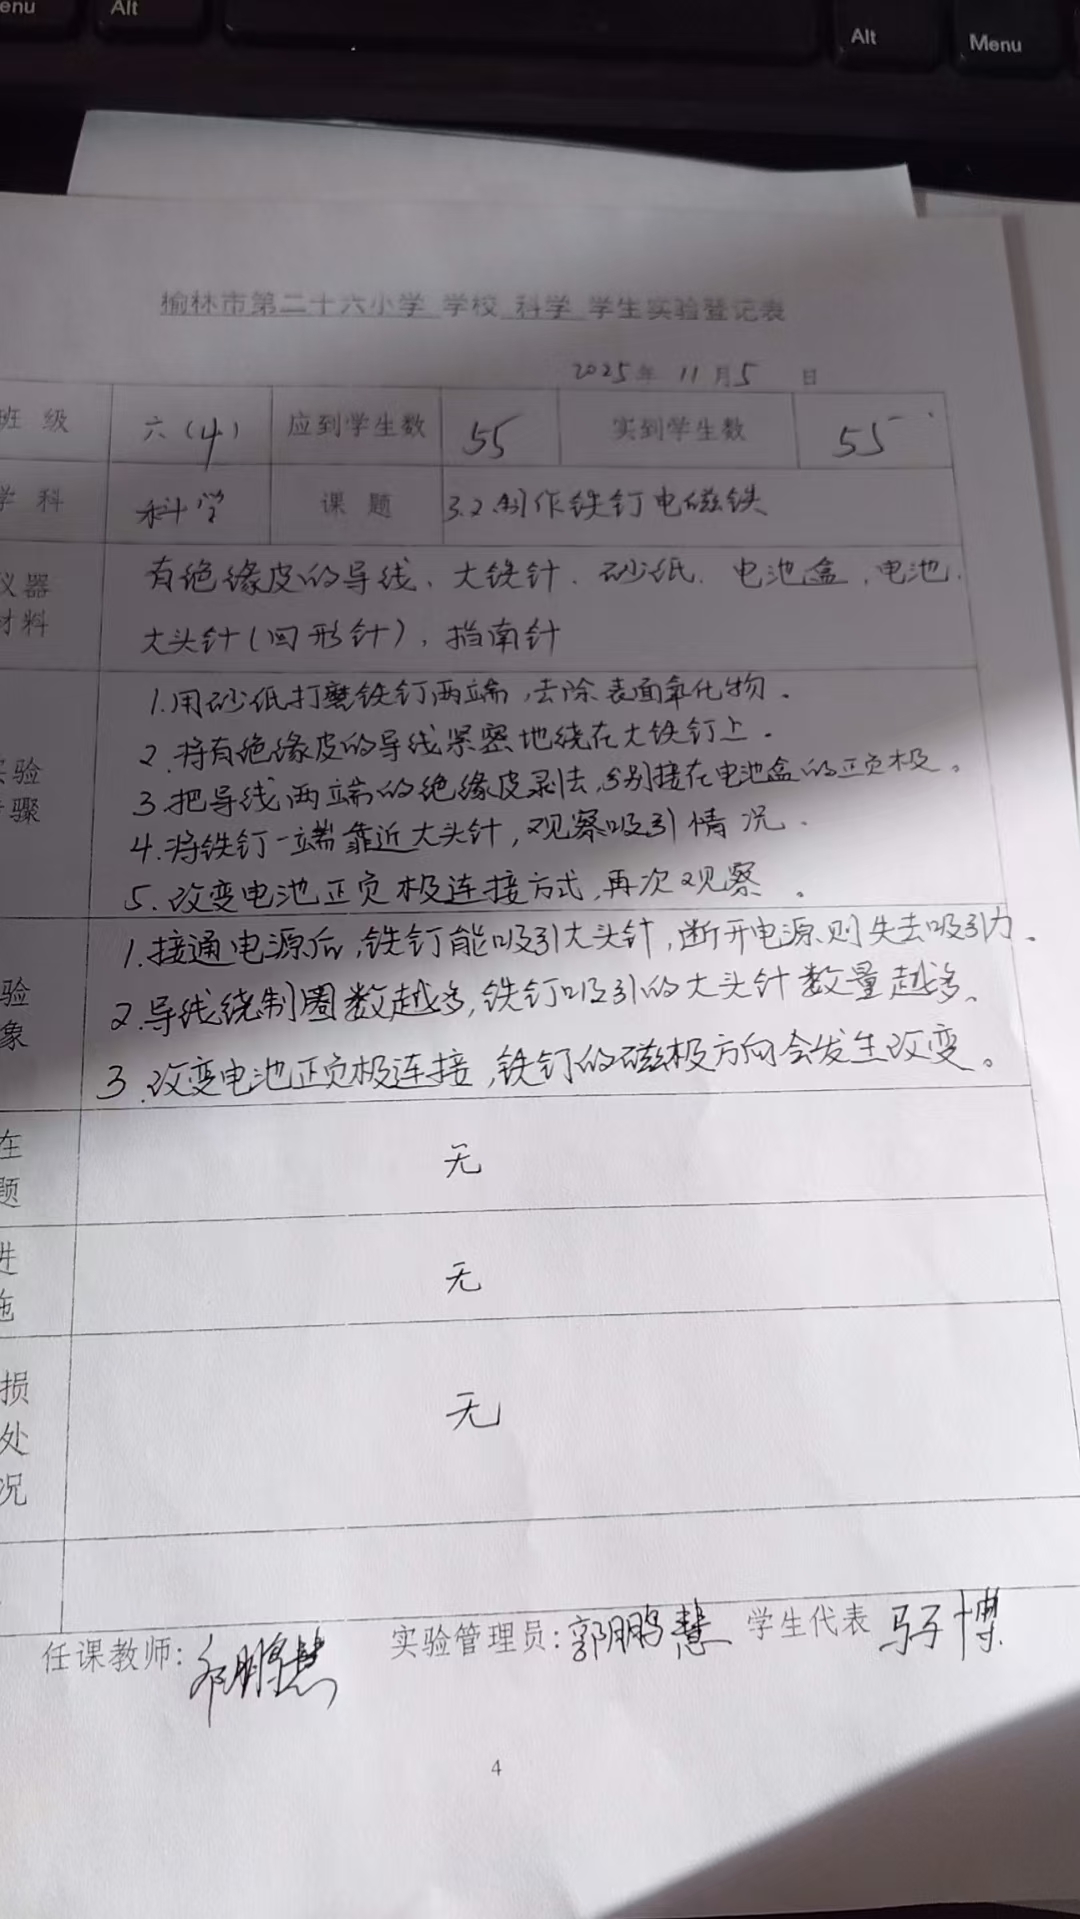 enu
Alt
Alt
Menu
榆林市第二十六小学 学校 科学 学生实验登记表
2025年 11月5 日
班 级 六(4) 应到学生数 55 实到学生数 55
学 科 科学 课 题 3.2制作铁钉电磁铁
仪器 有绝缘皮的导线、大铁针、砂纸、电池盒、电池、
材料 大头针(回形针)、指南针
1.用砂纸打磨铁钉两端,去除表面氧化物。
2.将有绝缘皮的导线紧密地绕在大铁钉上。
实验 3.把导线两端的绝缘皮剥去,分别接在电池盒的正负极。
步骤 4.将铁钉一端靠近大头针,观察吸引情况.
5.改变电池正负极连接方式,再次观察。
1.接通电源后,铁钉能吸引大头针,断开电源则失去吸引力.
验 2.导线绕制圈数越多,铁钉吸引的大头针数量越多、
象 3.改变电池正负极连接,铁钉的磁极方向会发生改变。
在 无
题
进 无
施
损
处 无
况
任课教师: 郭鹏慧 实验管理员:郭鹏慧 学生代表
4